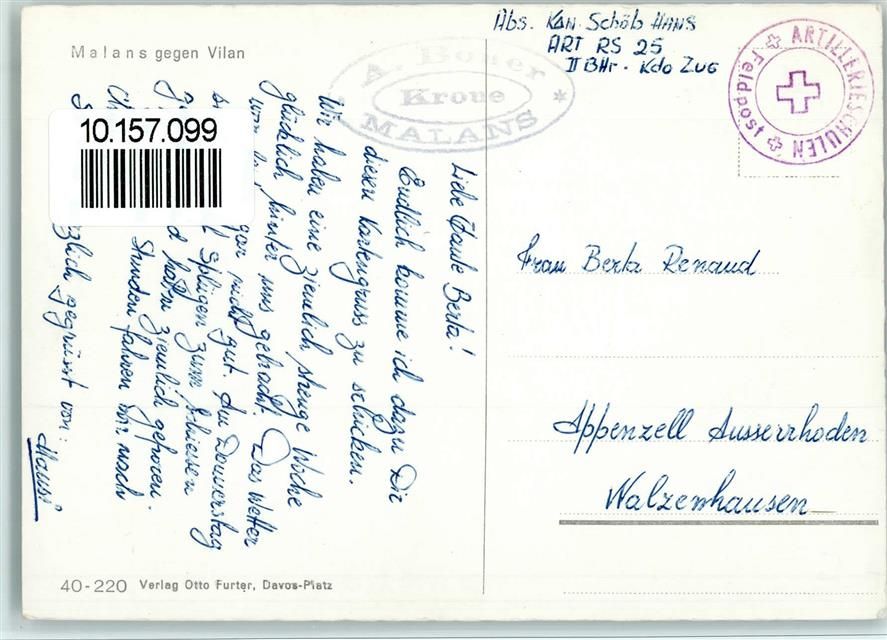 Malans gegen Vilan
Abs. Kan. Schöb HANS
ART RS 25
II BHr. Kdo ZUG
ARTILLERIESCHULEN
Feldpost
A. Boner
Krone
MALANS
10.157.099
Liebe Tante Berta!
Endlich komme ich dazu Dir
diesen Kartengruss zu schicken.
Wir haben eine ziemlich strenge Woche
glücklich hinter uns gebracht. Das Wetter
war gar nicht gut. Am Donnerstag
Splügen zum schiessen
haben ziemlich gefroren.
Stunden fahren wir nach
gegrüsst von:
Hansi
Frau Berta Renaud
Appenzell Ausserrhoden
Walzenhausen
40-220 Verlag Otto Furter, Davos-Platz